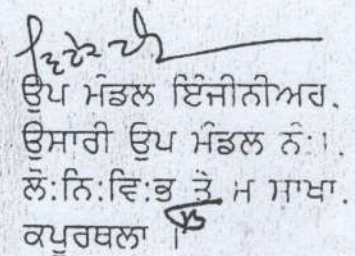 ਉਪ ਮੰਡਲ ਇੰਜੀਨੀਅਰ.
ਉਸਾਰੀ ਉਪ ਮੰਡਲ ਨੰ:1.
ਲੋ:ਨਿ:ਵਿ:ਭ ਤੇ ਮ ਸਾਖਾ.
ਕਪੂਰਥਲਾ ।